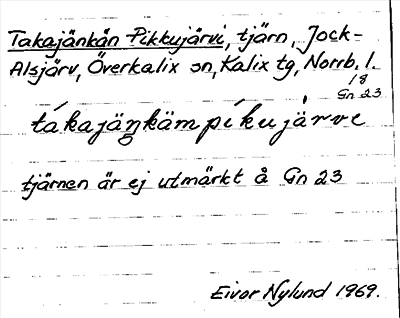 Takajänkän Pikkujärvi, tjärn, Jock-
Alsjärv, Överkalix sn, Kalix tg, Norrb. l.
18
Gn 23
tákajäŋkäm píkujä̀rve
tjärnen är ej utmärkt å Gn 23
Eivor Nylund 1969.